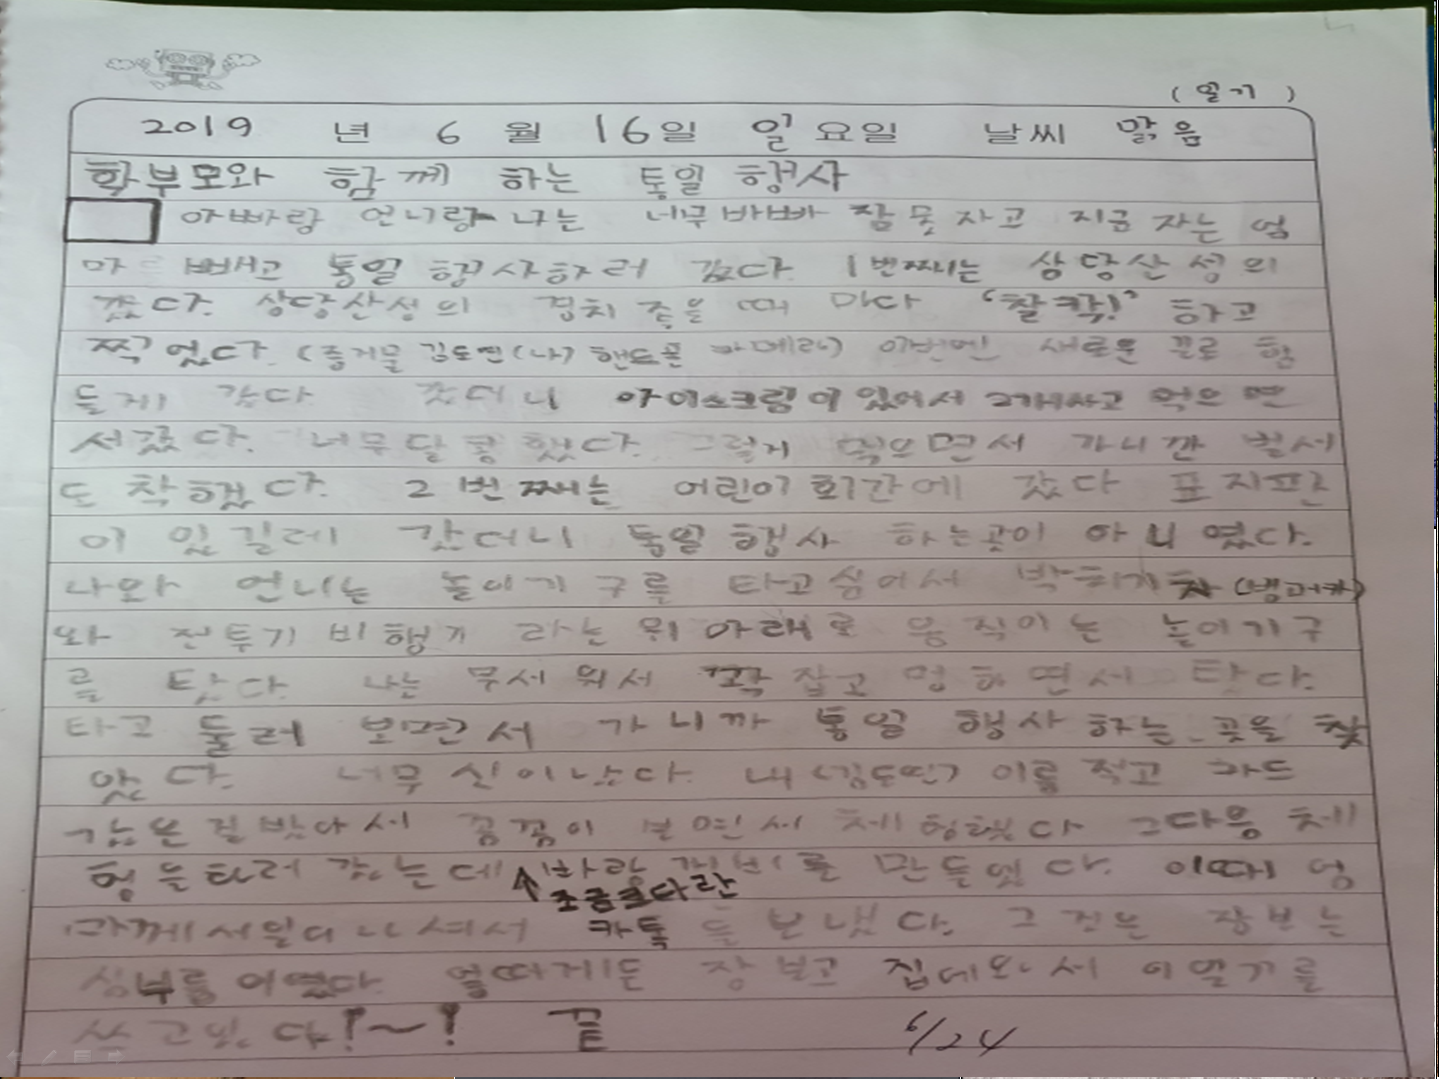 ( 일기 )
2019 년 6 월 16일 일요일 날씨 맑음
학부모와 함께 하는 통일 행사
아빠랑 언니랑 나는 너무바빠 잠못자고 지금 자는 엄
마 빼고 통일 행사하러 갔다. 1번째는 상당산성의
갔다. 상당산성의 경치 좋을때 마다 '찰칵!' 하고
찍었다. (증거물 (나) 핸드폰 카메라) 이번엔 새로운 길로 힘
들게 갔다 갔더니 아이스크림이 있어서 2개사고 먹으면
서갔다. 너무달콤했다. 그렇게 먹으면서 가니깐 벌서
도착했다. 2번째는 어린이회관에 갔다 표지판
이 있길레 갔더니 통일 행사 하는곳이 아니였다.
나와 언니는 놀이기구를 타고싶어서 박치기차 (범퍼카)
와 전투기 비행기 라는 위아래로 움직이는 놀이기구
를 탔다. 나는 무서워서 꽉 잡고 멍하면서 탔다.
타고 둘러 보면서 가니까 통일 행사 하는 곳을 찾
았다. 너무 신이났다. 내 이름적고 카드
같은걸받아서 꼼꼼이 보면서 체험했다 그다음 체
험을하러 갔는데 바람개비를 만들었다. 이때 엄
조금크다란
마께서일어나셔서 카톡을 보냈다. 그것은 장보는
심부름이였다. 어떠게든 장보고 집에와서 이일기를
쓰고있다!~! 끝
6/24